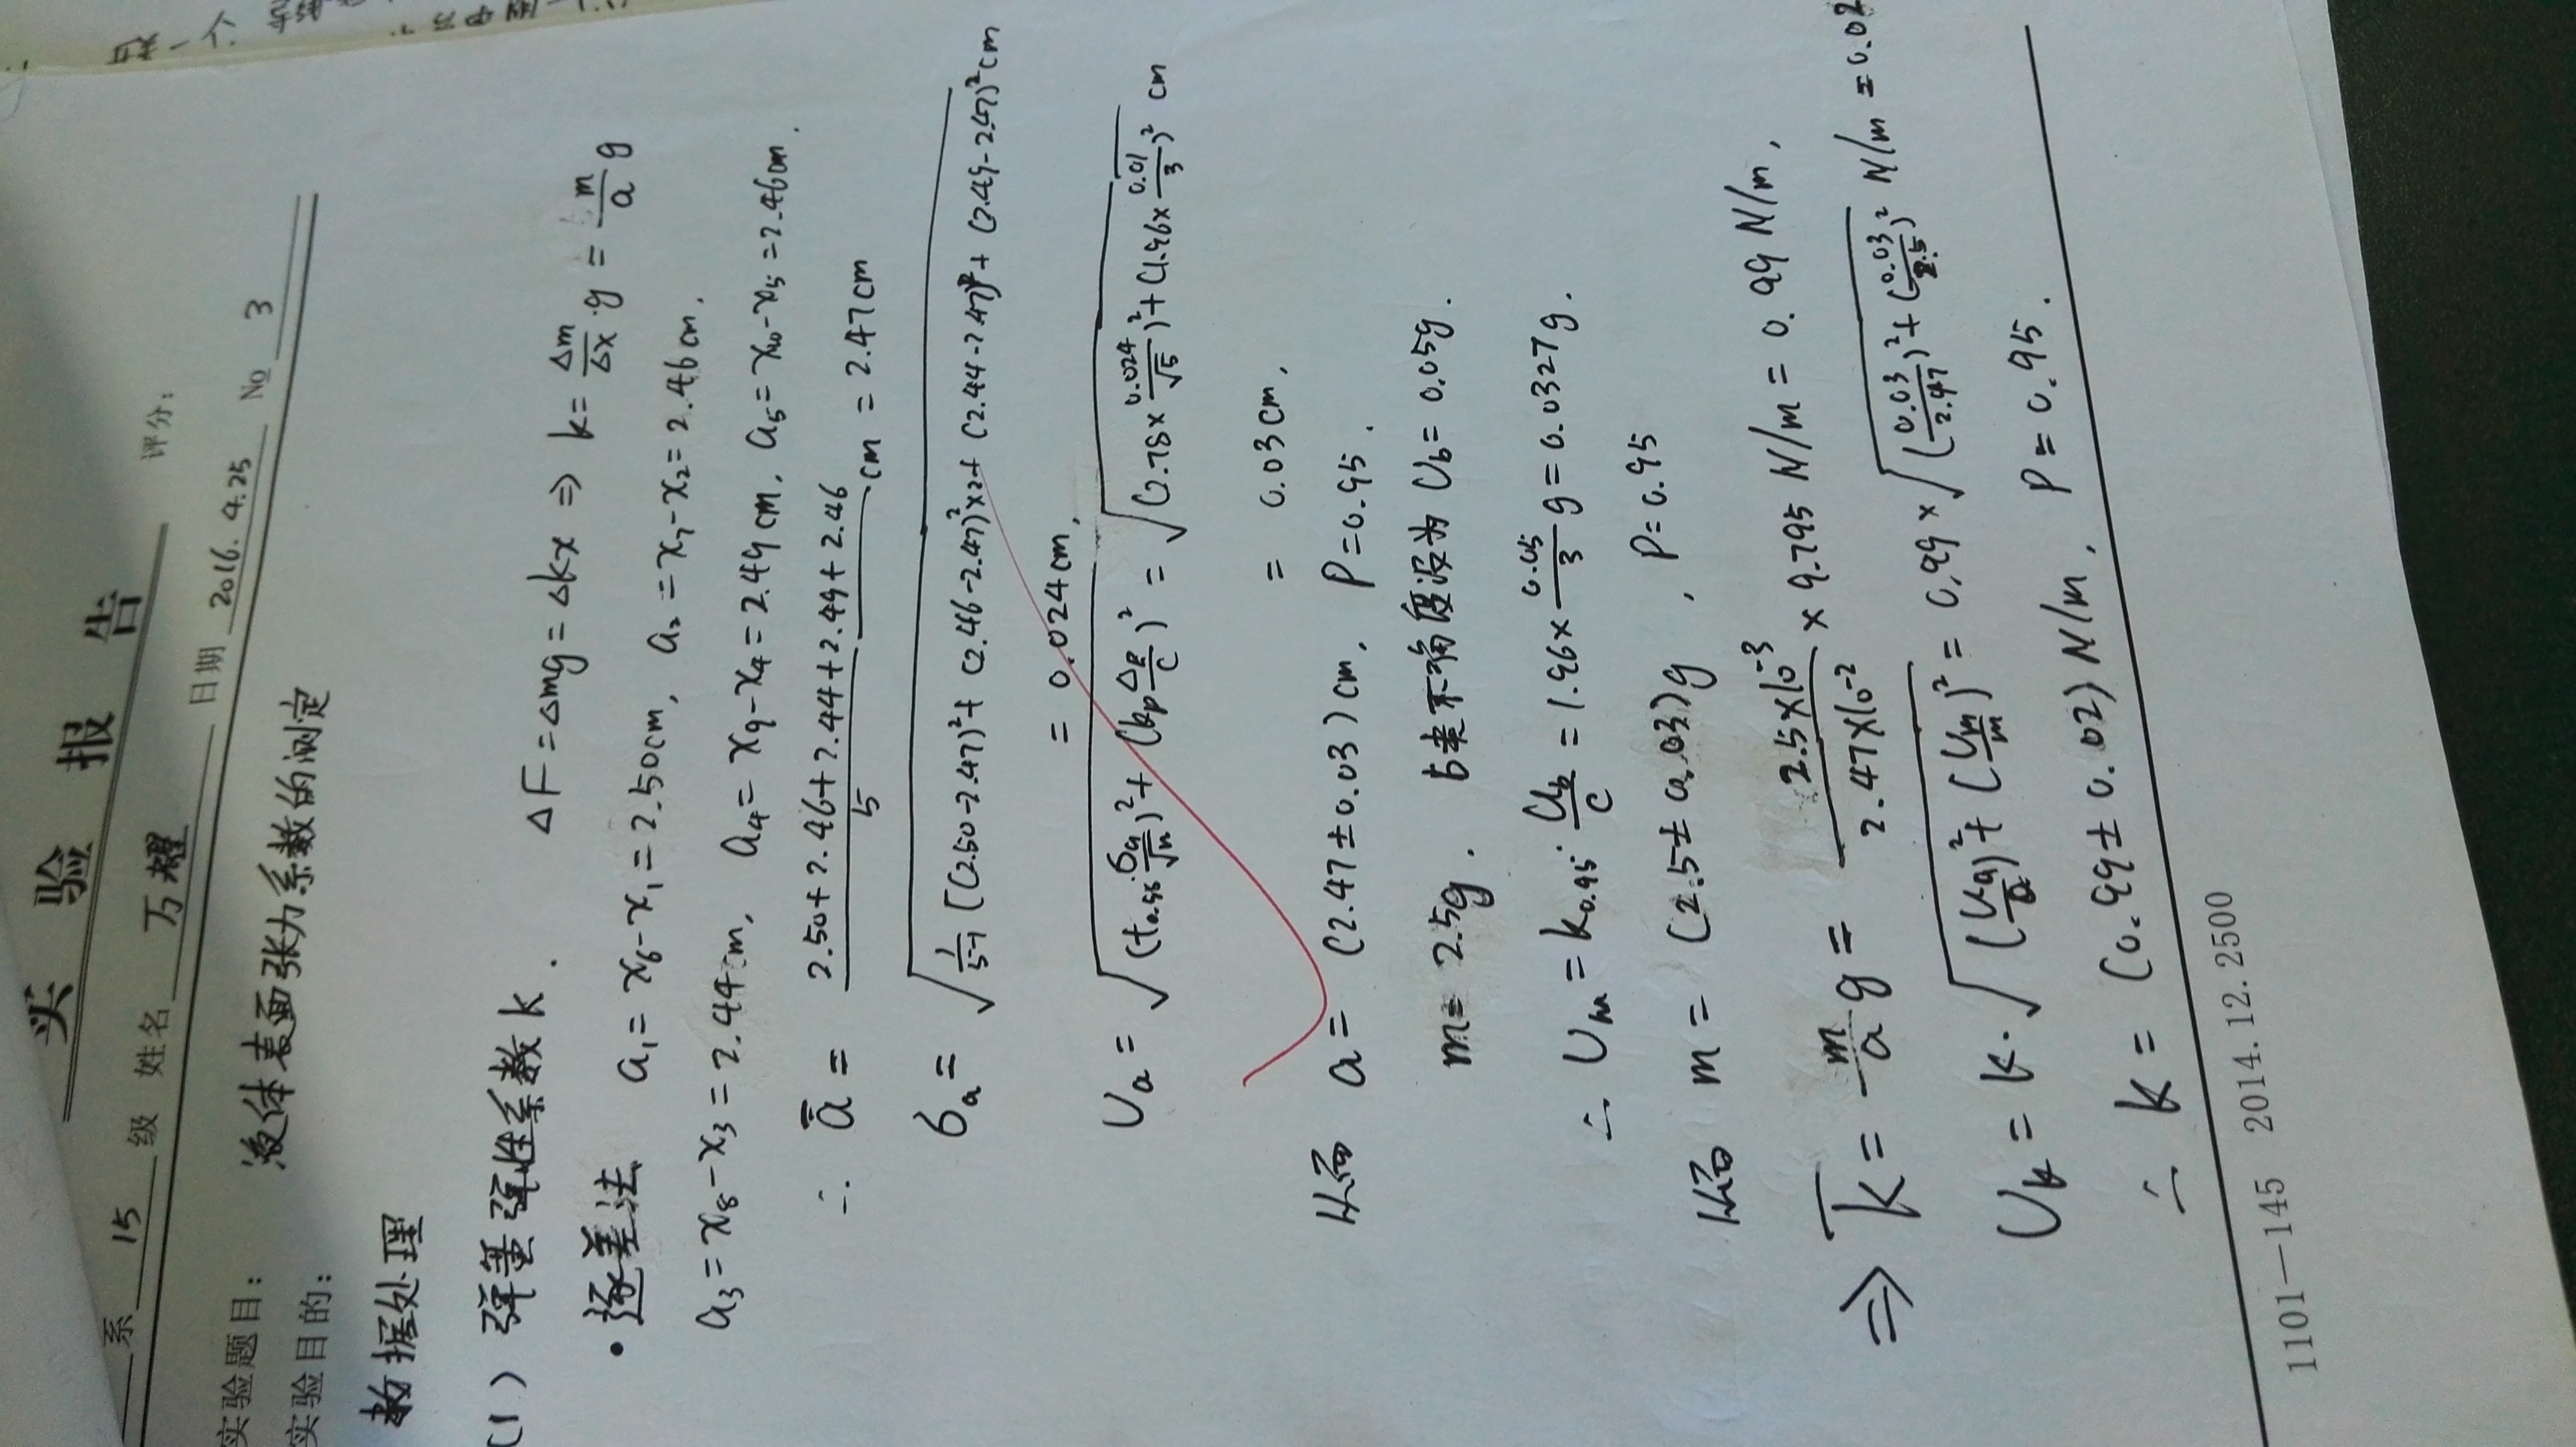 实验报告
评分:
系 15 级 姓名 万耀 日期 2016.4.25 № 3
实验题目: 液体表面张力系数的测定
实验目的:
数据处理
(1) 弹簧弹性系数k. ΔF=Δmg=Δkx ⇒ k=Δm/Δx·g=m/a g
·逐差法 a₁=x₆-x₁=2.50cm, a₂=x₇-x₂=2.46cm,
a₃=x₈-x₃=2.44cm, a₄=x₉-x₄=2.49cm, a₅=x₁₀-x₅=2.46cm.
∴ ā = (2.50+2.46+2.44+2.49+2.46)/5 cm = 2.47cm
σₐ= √(1/(5-1) [(2.50-2.47)²+(2.46-2.47)²×2+(2.44-2.47)²+(2.49-2.47)² cm
= 0.024cm,
Uₐ= √((t₀.₉₅·σₐ/√n)²+(kₚΔB/C)²) = √((2.78×0.024/√5)²+(1.96×0.01/3)²) cm
= 0.03cm,
a=(2.47±0.03)cm, P=0.95.
m=2.5g. 不确定度 为 U_b=0.05g.
∴ Uₘ=k₀.₉₅·U_b/C=1.96×0.05/3 g=0.0327g.
m=(2.5±0.03)g, P=0.95
⇒ k̄= m/a g= (2.5×10⁻³)/(2.47×10⁻²)×9.795N/m=0.99N/m,
Uₖ=k·√((Uₐ/a)²+(Uₘ/m)²)=0.99×√((0.03/2.47)²+(0.03/2.5)²) N/m=0.02
∴ k=(0.99±0.02)N/m, P=0.95.
1101-145 2014.12.2500